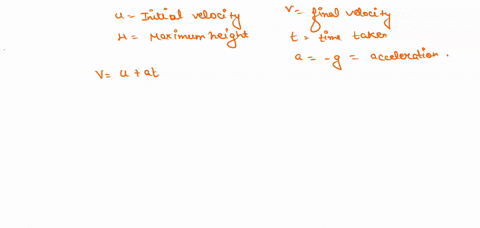 u = Initial velocity
V = final velocity
H = Maximum height
t = time taken
a = -g = acceleration.
V = u + at